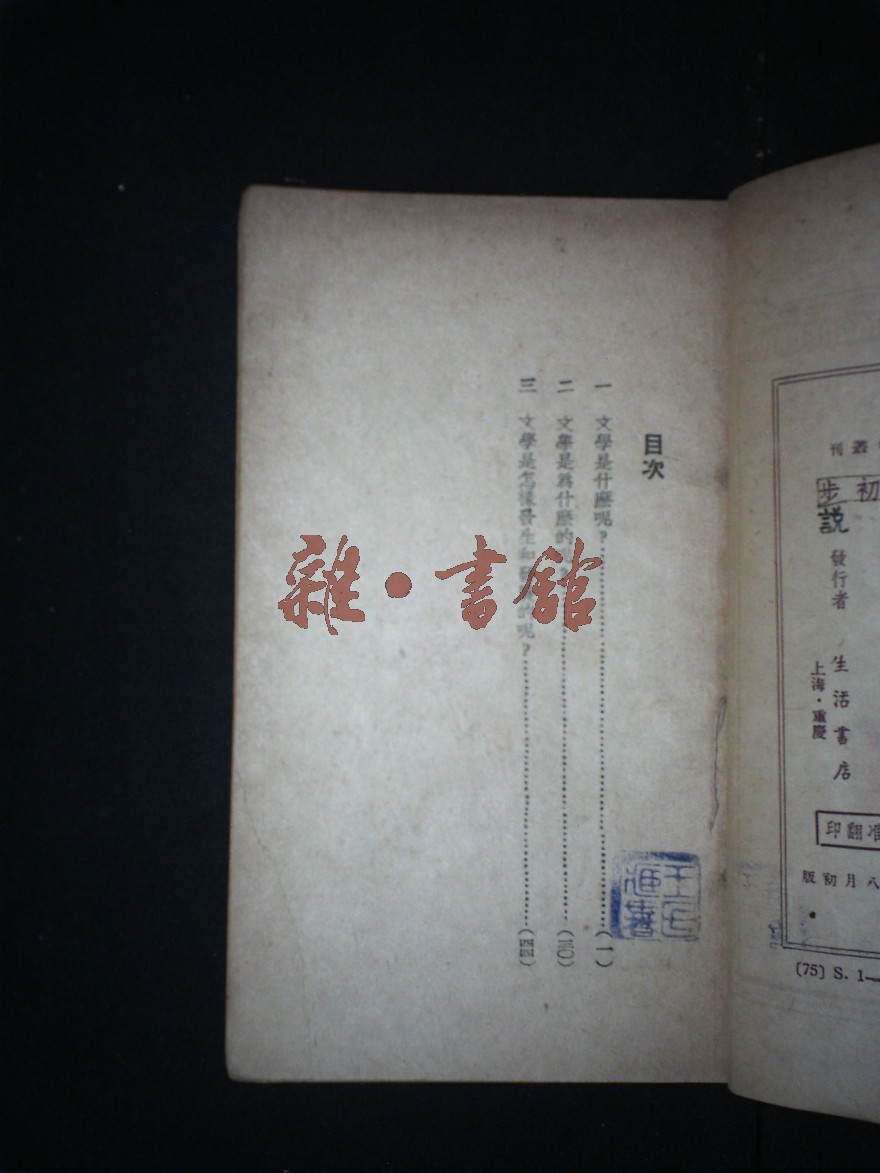 叢刊
初步
説
發行者
生活書店
上海・重慶
准翻印
八月初版
〔75〕 S. 1—
目次
一 文學是什麽呢?……(一)
二 文學是爲什麽的呢……(三〇)
三 文學是怎樣發生和 的呢?……(四四)
雜・書館
王氏